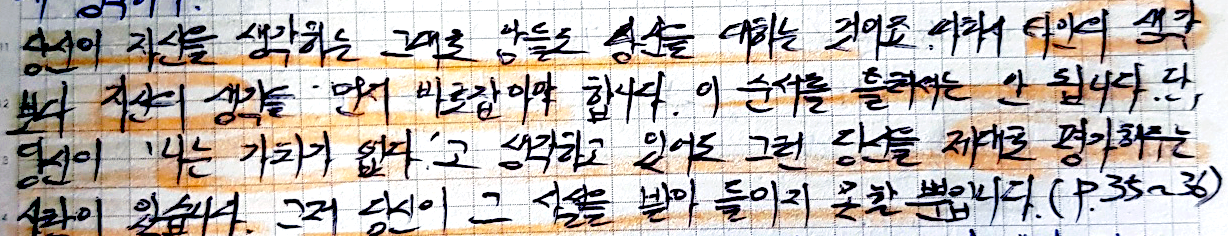 당신이 자신을 생각하는 그대로 남들도 당신을 대하는 것이죠. 따라서 타인의 생각
보다 자신의 생각을 먼저 바로잡아야 합니다. 이 순서를 틀려서는 안 됩니다. 단,
당신이 '나는 가치가 없다'고 생각하고 있어도 그런 당신을 제대로 평가해주는
사람이 있습니다. 그저 당신이 그 사실을 받아 들이지 못할 뿐입니다. (P.35~36)